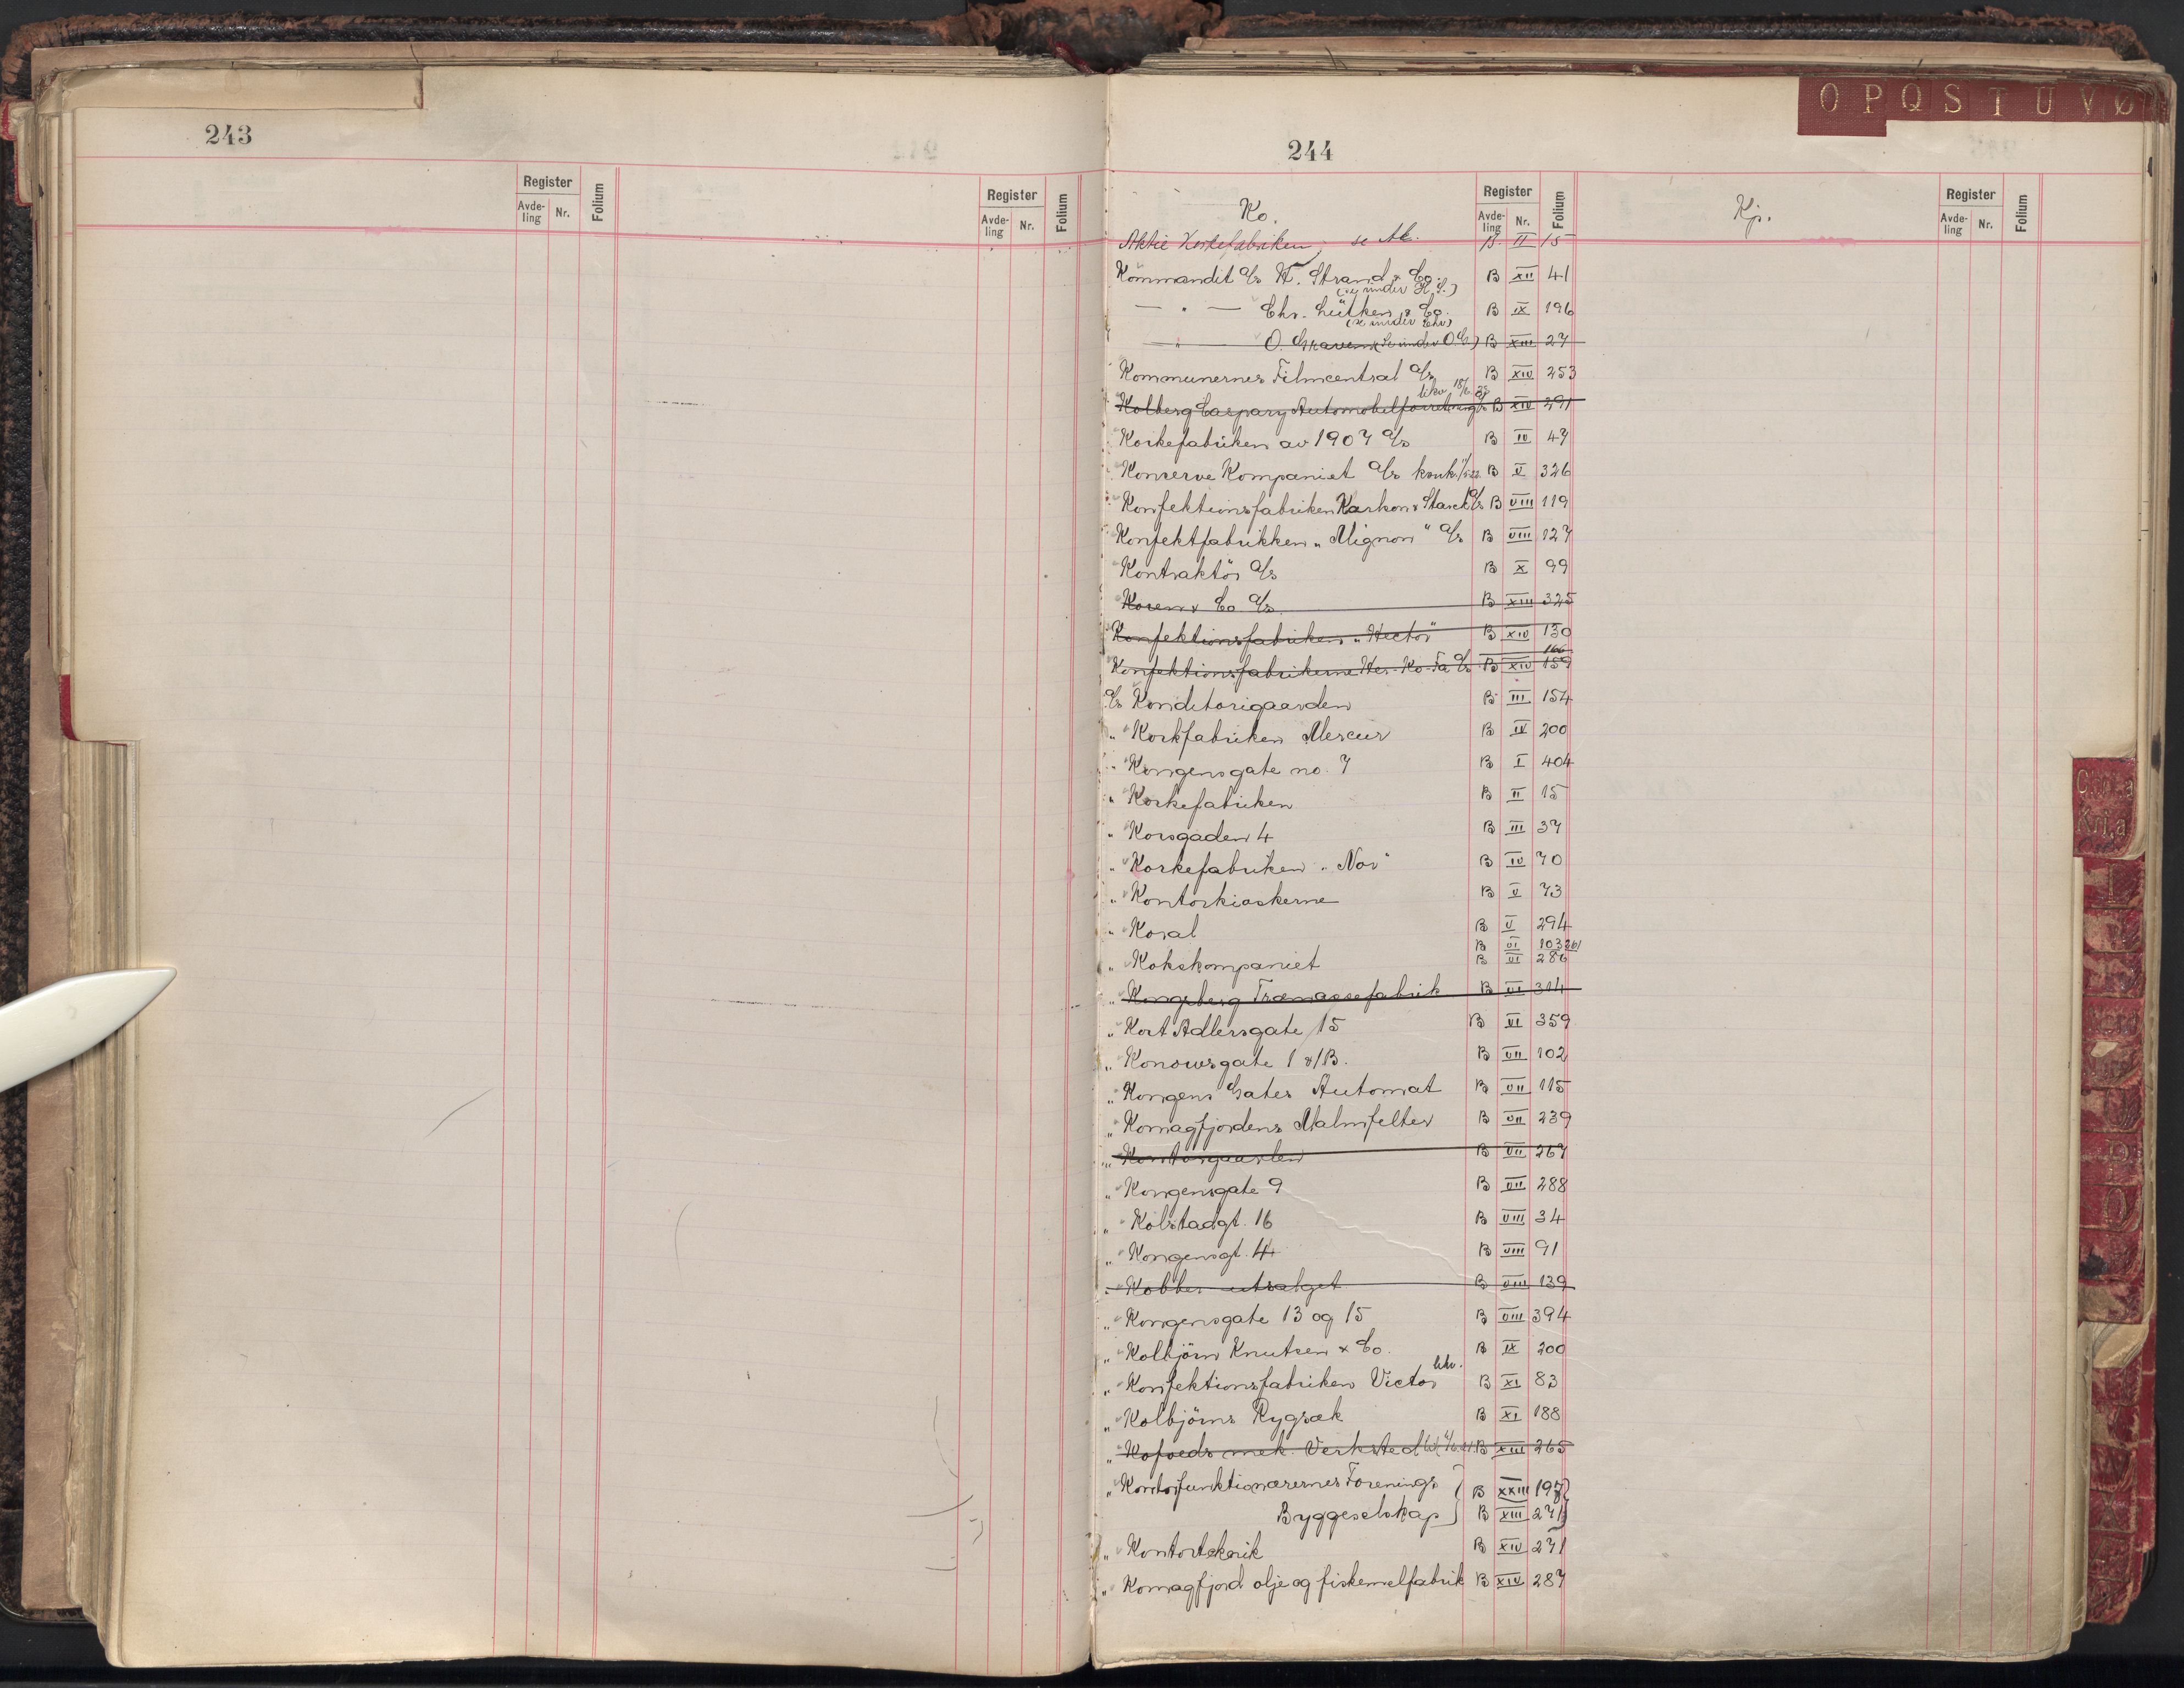 243
Register
Avde-
ling
Nr.
Folium
Register
Avde-
ling
Nr.
Folium
O P Q S T U V Ø
244
Ko.
Register
Avde-
ling
Nr.
Folium
Kj.
Register
Avde-
ling
Nr.
Folium
Aktie Korkefabriken, se Ak. B II 15
Kommandit A/s H. Strand & Co. B XII 41
(se under H. S.)
— " — Chr. Lütken & Co. B IX 196
(se under Chr)
— " — O. (Se under O. G) B XIII 27
Kommunernes Filmcentral A/s B XIV 253
likv.
Kolberg Caspary Automobilforretning A/s B XIV 291
Korkefabriken av 1907 A/s B IV 47
Konserve Kompaniet A/s konk. B V 326
Konfektionsfabriken Karkov & Starck A/s B VIII 119
Konfektfabrikken "Mignon" A/s B VIII 127
Kontraktör A/s B X 99
Koren & Co A/s B XIII 325
Konfektionsfabriken "Hector" B XIV 130
166
Konfektionsfabrikerne Her-Ko-Fa A/s B XIV 159
A/s Konditorigaarden B III 154
" Korkfabriken Mercur B IV 200
" Kongensgate no. 7 B I 404
" Korkefabriken B II 15
" Korsgaden 4 B III 37
" Korkefabriken "Nor" B IV 70
" Kontorkioskerne B V 73
" Koral B V 294
B VI 103 261
" Kokskompaniet B VI 286
" Kongsberg Træmassefabrik B VI 314
" Kort Adlersgate 15 B VI 359
" Konowsgate 1 & 1B. B VII 102
" Kongens Gates Automat B VII 115
" Komagfjordens Malmfelter B VII 239
" Kontorgaarden B VII 267
" Kongensgate 9 B VII 288
" Kolstadgt. 16 B VIII 34
" Kongensgt. 4 B VIII 91
" Kobber utsalget B VIII 139
" Kongensgate 13 og 15 B VIII 394
" Kolbjörn Knutsen & Co. B IX 200
" Konfektionsfabriken Victor likv. B XI 83
" Kolbjörns Rygsæk B XI 188
" Kofoeds mek. Verksted B XIII 265
" Kontorfunktionærernes Forenings B XXIII 197
Byggeselskap B XIII 271
" Kontorteknik B XIV 271
" Komagfjord olje og fiskemelfabrik B XIV 287